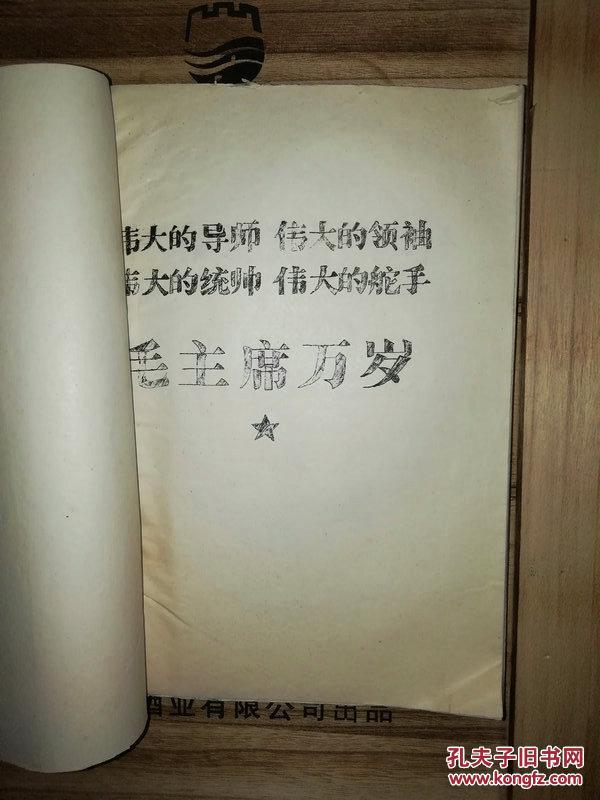 伟大的导师 伟大的领袖
伟大的统帅 伟大的舵手
毛主席万岁
酒业有限公司出品
孔夫子旧书网
www.kongfz.com